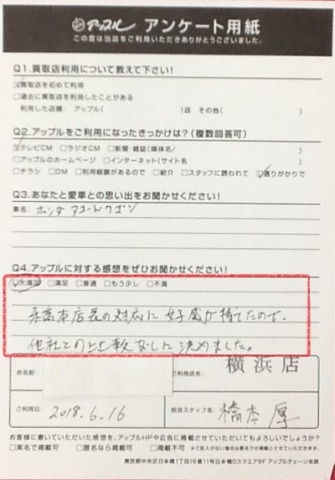 アップル アンケート用紙
この度は当店をご利用いただきありがとうございました。
Q1.買取店利用について教えて下さい!
☑買取店を初めて利用
□過去に買取店を利用したことがある
利用した店舗: アップル( )店 その他( )
Q2.アップルをご利用になったきっかけは?(複数回答可)
☑テレビCM □ラジオCM □新聞・雑誌(媒体名/ )
□アップルのホームページ □インターネット(サイト名 )
□チラシ □DM □利用経験があるので □紹介 □スタッフに誘われて ☑通りがかりで
Q3.あなたと愛車との思い出をお聞かせください!
車名: ホンダ アコードワゴン
Q4.アップルに対する感想をぜひお聞かせください!
☑大満足 □満足 □普通 □もう少し □不満
本店長の対応に好感が持てたので、
他社との比較なしに決めました。
お名前:
ご利用店名: 横浜店
ご利用日: 2018.6.16
担当スタッフ名: 橋本 厚
お客様に書いていただいた感想を、アップルHPや広告に掲載させていただいてもよろしいでしょうか?
□実名で可 □匿名なら可 □掲載不可
東京都中央区日本橋1丁目16番11号日本橋ロスクエア5F アップルチェーン本部